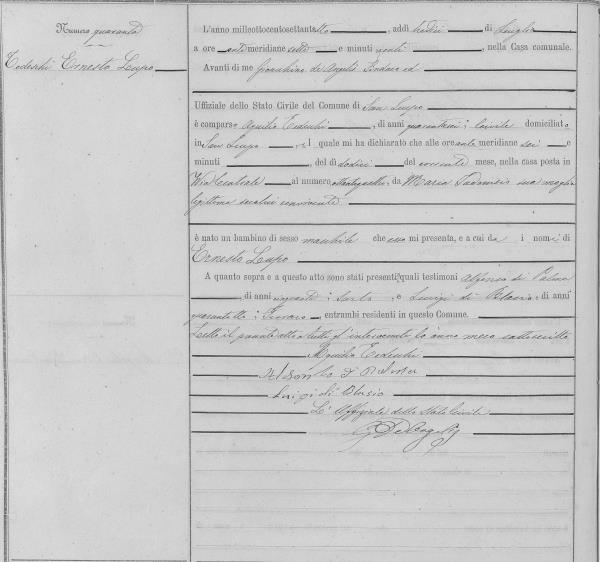 Numero quaranta
Tedeschi Ernesto Lupo
L'anno milleottocentosettantotto, addì dodici di Luglio
a ore antimeridiane sette e minuti venti, nella Casa comunale.
Avanti di me Gioacchino de Angelis Sindaco ed
Uffiziale dello Stato Civile del Comune di San Lupo
è comparso Aquilio Tedeschi, di anni, Civile domiciliato
in San Lupo, il quale mi ha dichiarato che alle ore ante meridiane sei e
minuti, del dì dodici del corrente mese, nella casa posta in
Via Centrale al numero, da Maria sua moglie
legittima seco lui convivente
è nato un bambino di sesso maschile che esso mi presenta, e a cui dà i nomi di
Ernesto Lupo
A quanto sopra e a questo atto sono stati presenti quali testimoni Alfonso di Palma
, di anni, Sarto, e Luigi di Blasio, di anni
quarantotto, entrambi residenti in questo Comune.
Letto il presente atto a tutti gl'intervenuti, lo anno meco sottoscritto
Aquilio Tedeschi
Alfonso d Palma
Luigi di Blasio
L'Uffiziale dello Stato Civile
G De Angelis